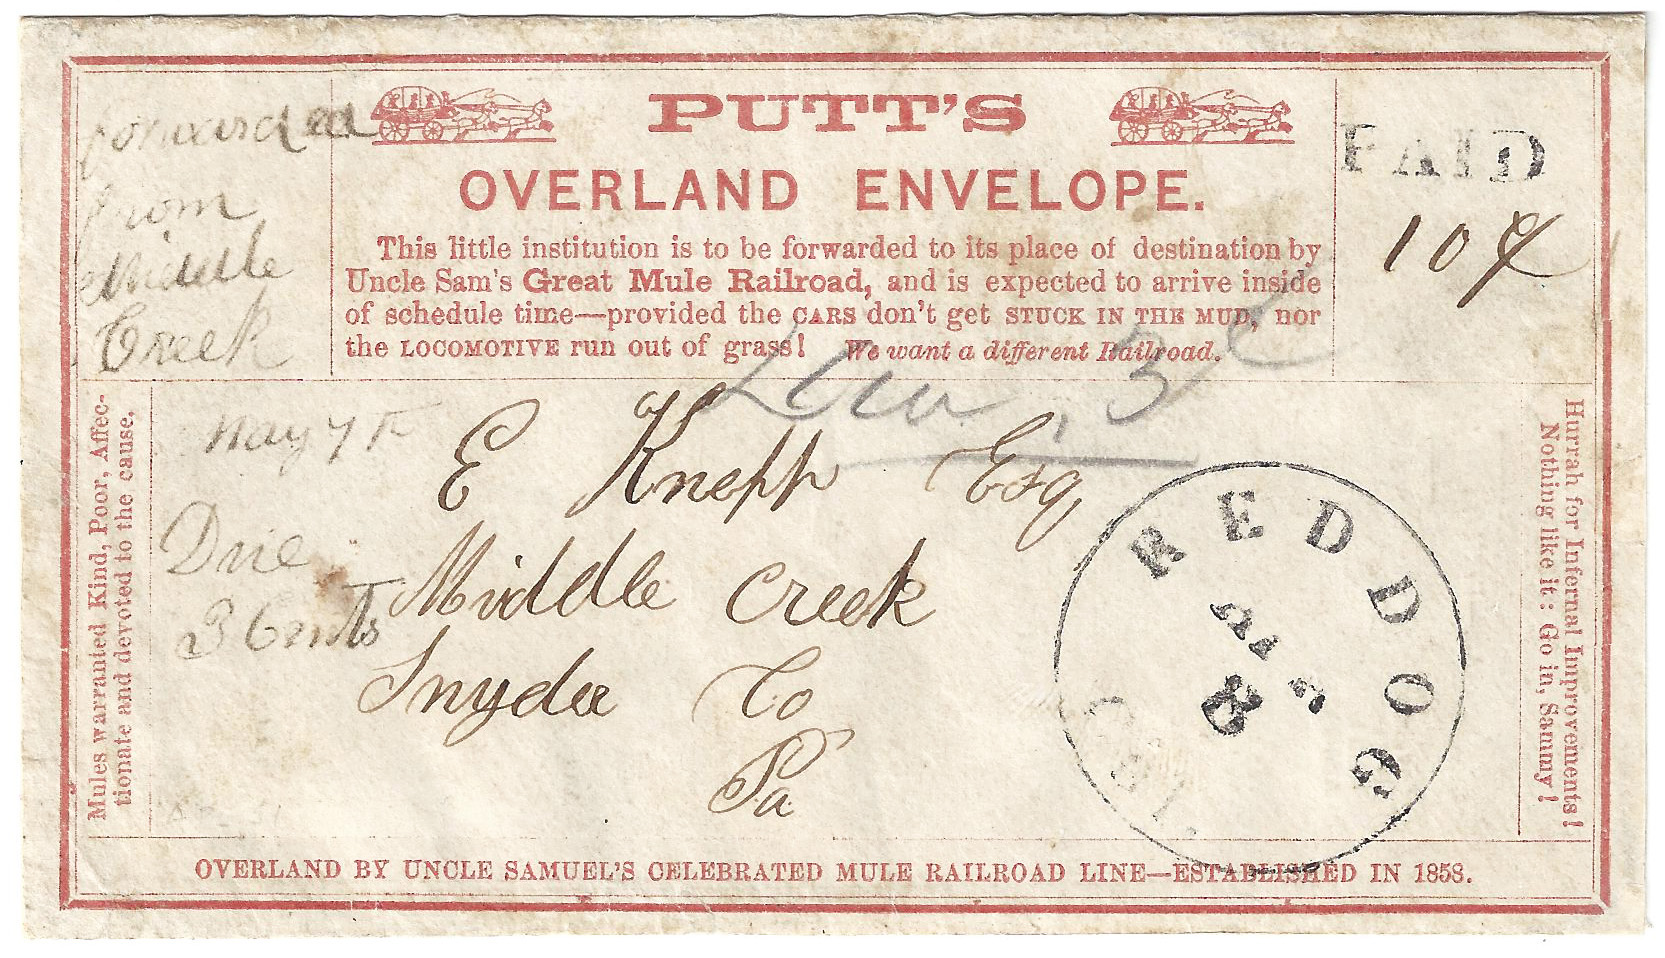 PUTT'S
OVERLAND ENVELOPE.
This little institution is to be forwarded to its place of destination by
Uncle Sam's Great Mule Railroad, and is expected to arrive inside
of schedule time—provided the CARS don't get STUCK IN THE MUD, nor
the LOCOMOTIVE run out of grass! We want a different Railroad.
forwarded
from
Middle
Creek
May 7th
Due
3 Cents
PAID
10¢
5
E Knepp Esq
Middle Creek
Snyder Co
Pa
RED DOG
CAL.
8
Mules warranted Kind, Poor, Affec-
tionate and devoted to the cause.
Hurrah for Infernal Improvements!
Nothing like it: Go in, Sammy!
OVERLAND BY UNCLE SAMUEL'S CELEBRATED MULE RAILROAD LINE—ESTABLISHED IN 1858.